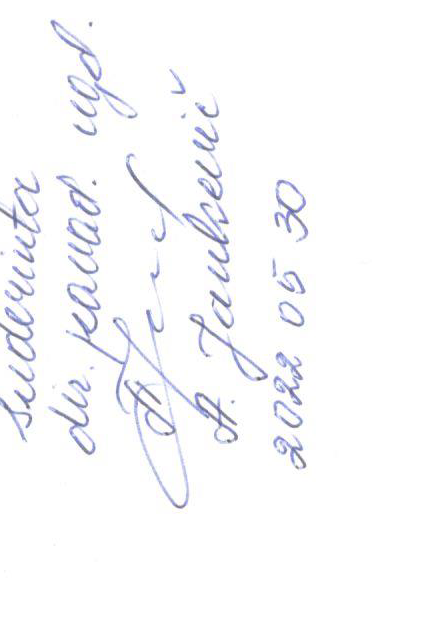 Suderinta
dir. pavad. ugd.
A. Jankevič
2022 05 30